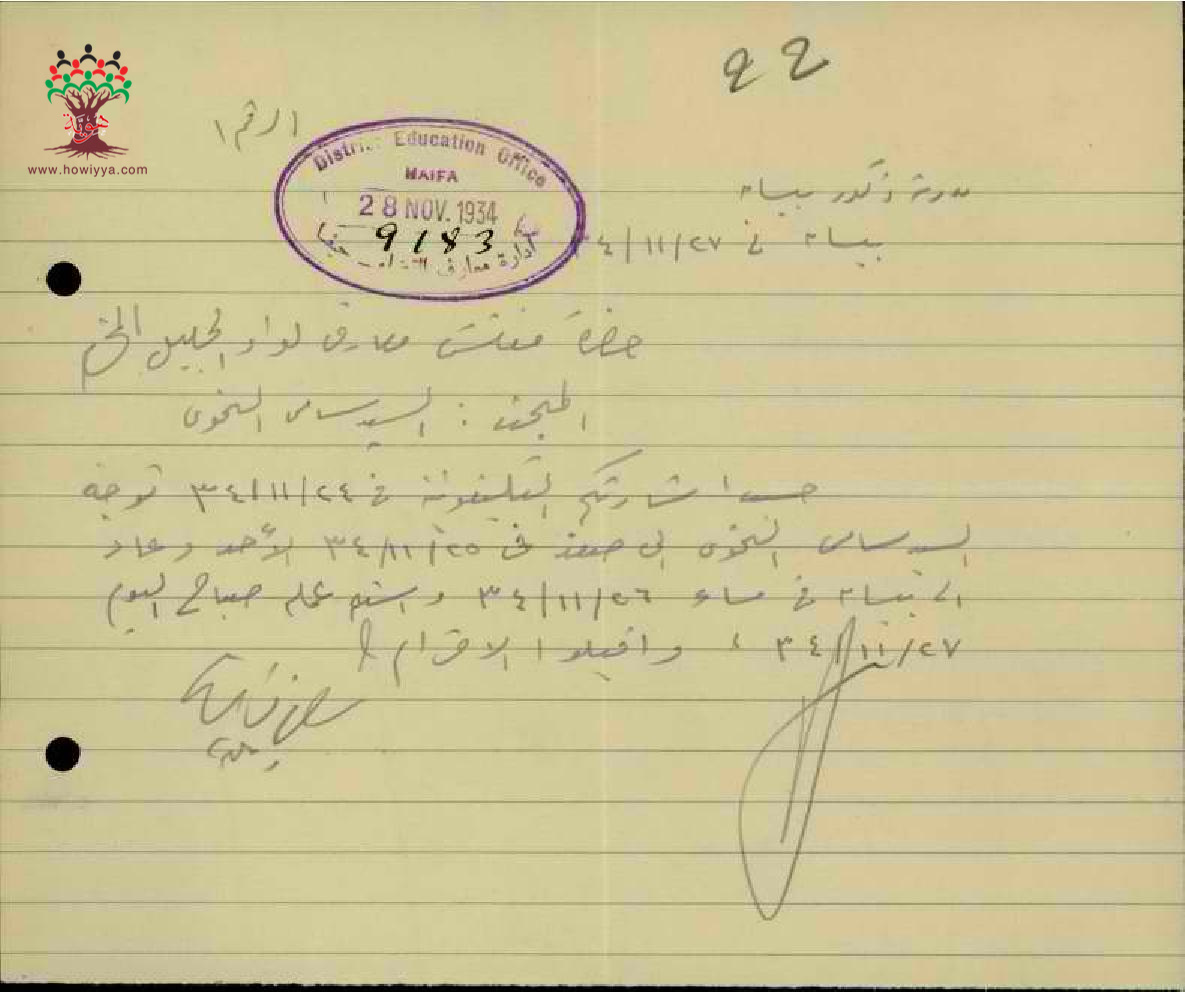 22
الرقم ١
هوية
www.howiyya.com
District Education Office
HAIFA
28 NOV. 1934
9183
ادارة معارف حيفا
مدرسة ذكور بيسان
بيسان في ٣٤/١١/٢٧
حضرة مفتش معارف لواء الجليل المحترم
المبحث : السيد سامي النحوي
حسب اشارتكم التليفونية في ٣٤/١١/٢٤ توجه
السيد سامي النحوي الى صفد في ٣٤/١١/٢٥ الأحد وعاد
الى بيسان في مساء ٣٤/١١/٢٦ واستلم عمله صباح اليوم
٣٤/١١/٢٧ ، واقبلوا الاحترام